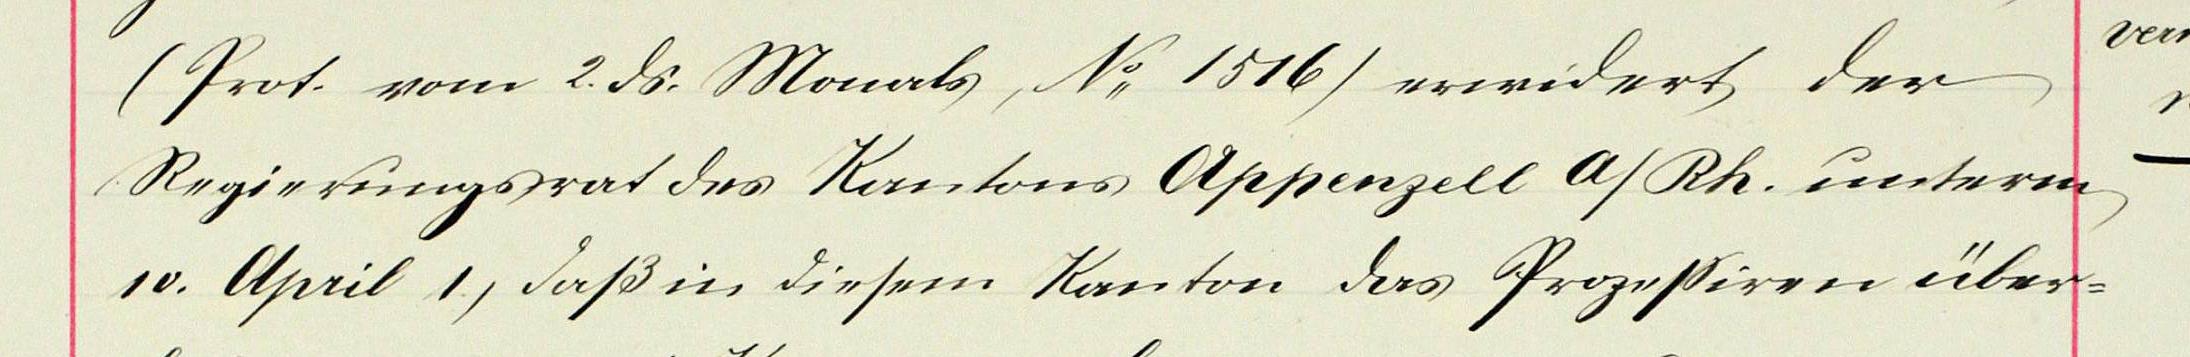 (Prot. vom 2. ds. Monats, No 1516) erwidert der
Regierungsrat des Kantons Appenzell A/Rh. unterm
10. April l., daß in diesem Kanton das Prozessiren über=